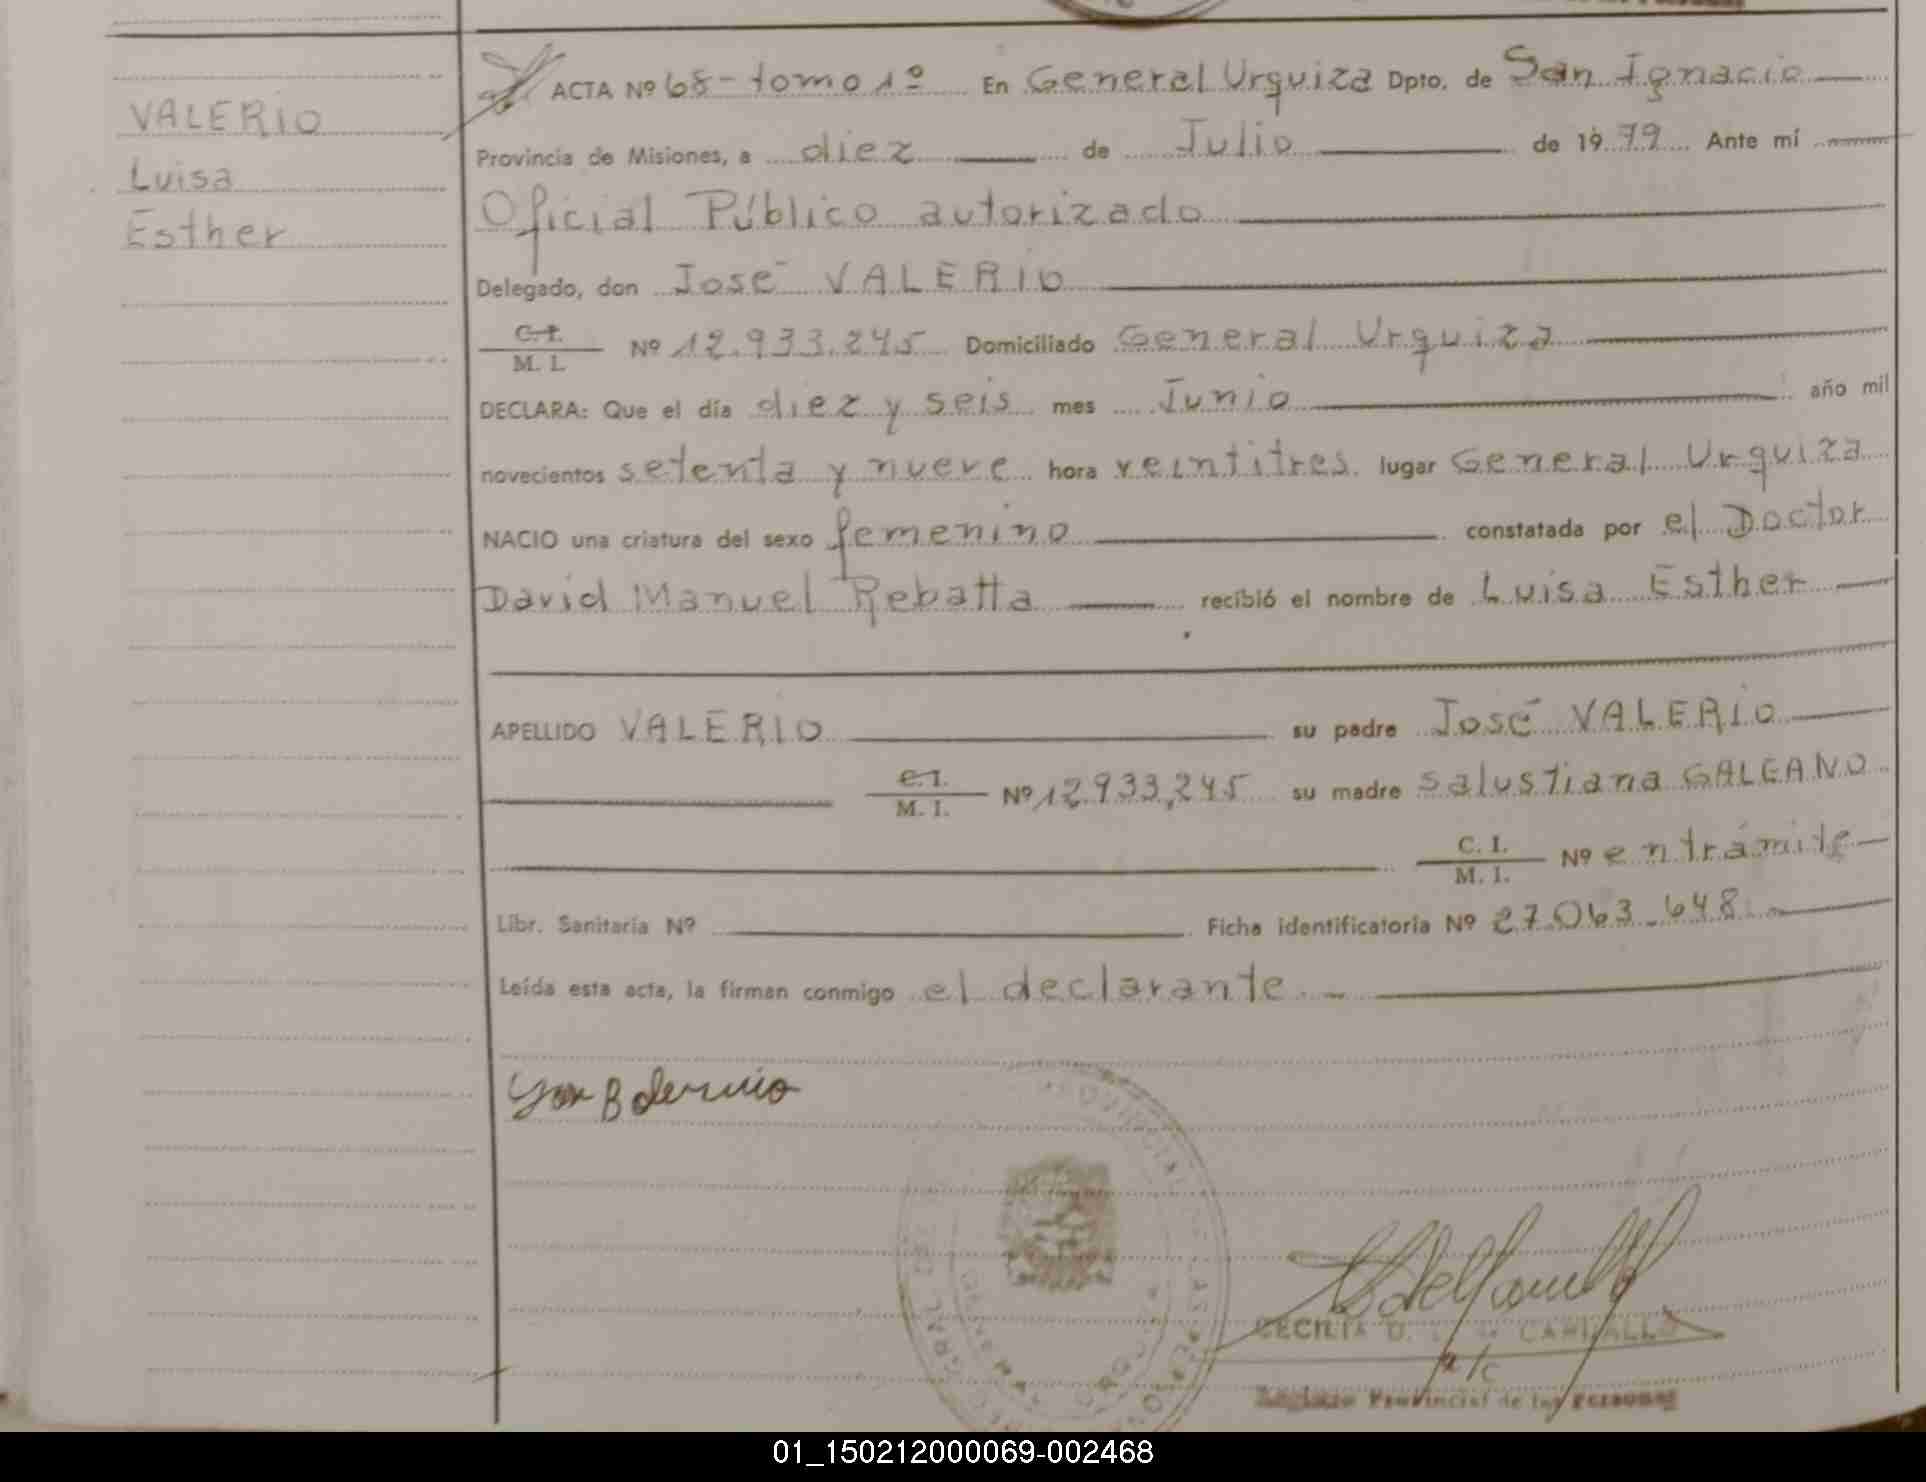 VALERIO
Luisa
Esther
ACTA Nº 68 - tomo 1º En General Urquiza Dpto. de San Ignacio
Provincia de Misiones, a diez de Julio de 1979 Ante mí
Oficial Público autorizado
Delegado, don José VALERIO
C.I. / M. I. Nº 12.933.245 Domiciliado General Urquiza
DECLARA: Que el día diez y seis mes Junio año mil
novecientos setenta y nueve hora veintitres lugar General Urquiza
NACIO una criatura del sexo femenino constatada por el Doctor
David Manuel Rebatta recibió el nombre de Luisa Esther
APELLIDO VALERIO su padre José VALERIO
C.I. / M. I. Nº 12.933,245 su madre Salustiana GALEANO
C. I. / M. I. Nº en trámite
Libr. Sanitaria Nº Ficha identificatoria Nº 27.063.648
Leída esta acta, la firman conmigo el declarante.
CECILIA D.
a/c
Registro Provincial de las Personas
01_150212000069-002468